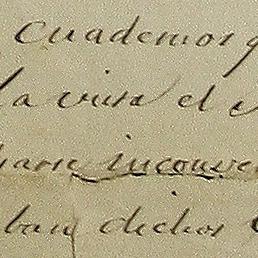 cuadernos q
la viuda el
inconve
ban dichos